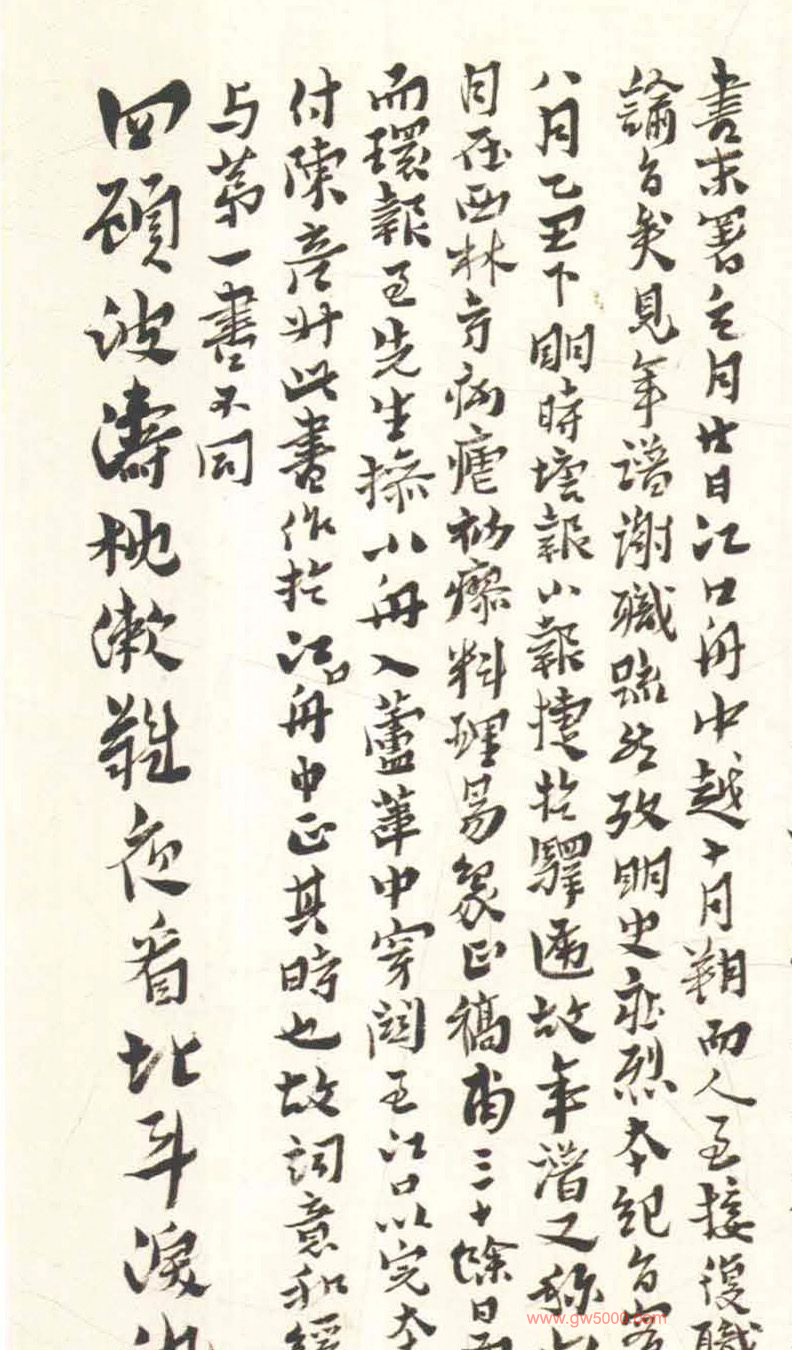 書末署云月廿日江口舟中越十月朔而人至接復職
諭旨矣見年譜謝職疏然攷明史莊烈本紀旨
八月乙丑下明時塘報小報捷於驛遞故年譜又称
月在西林方病瘧初瘳料理易象正稿甫三十餘日
而環報至先生操小舟入蘆葦中穿閱至江口以完本
付陳彦升此書作於江口舟中正其時也故詞意和緩
与第一書不同
回頭波濤枕漱難夜看北斗淚
www.gw5000.com